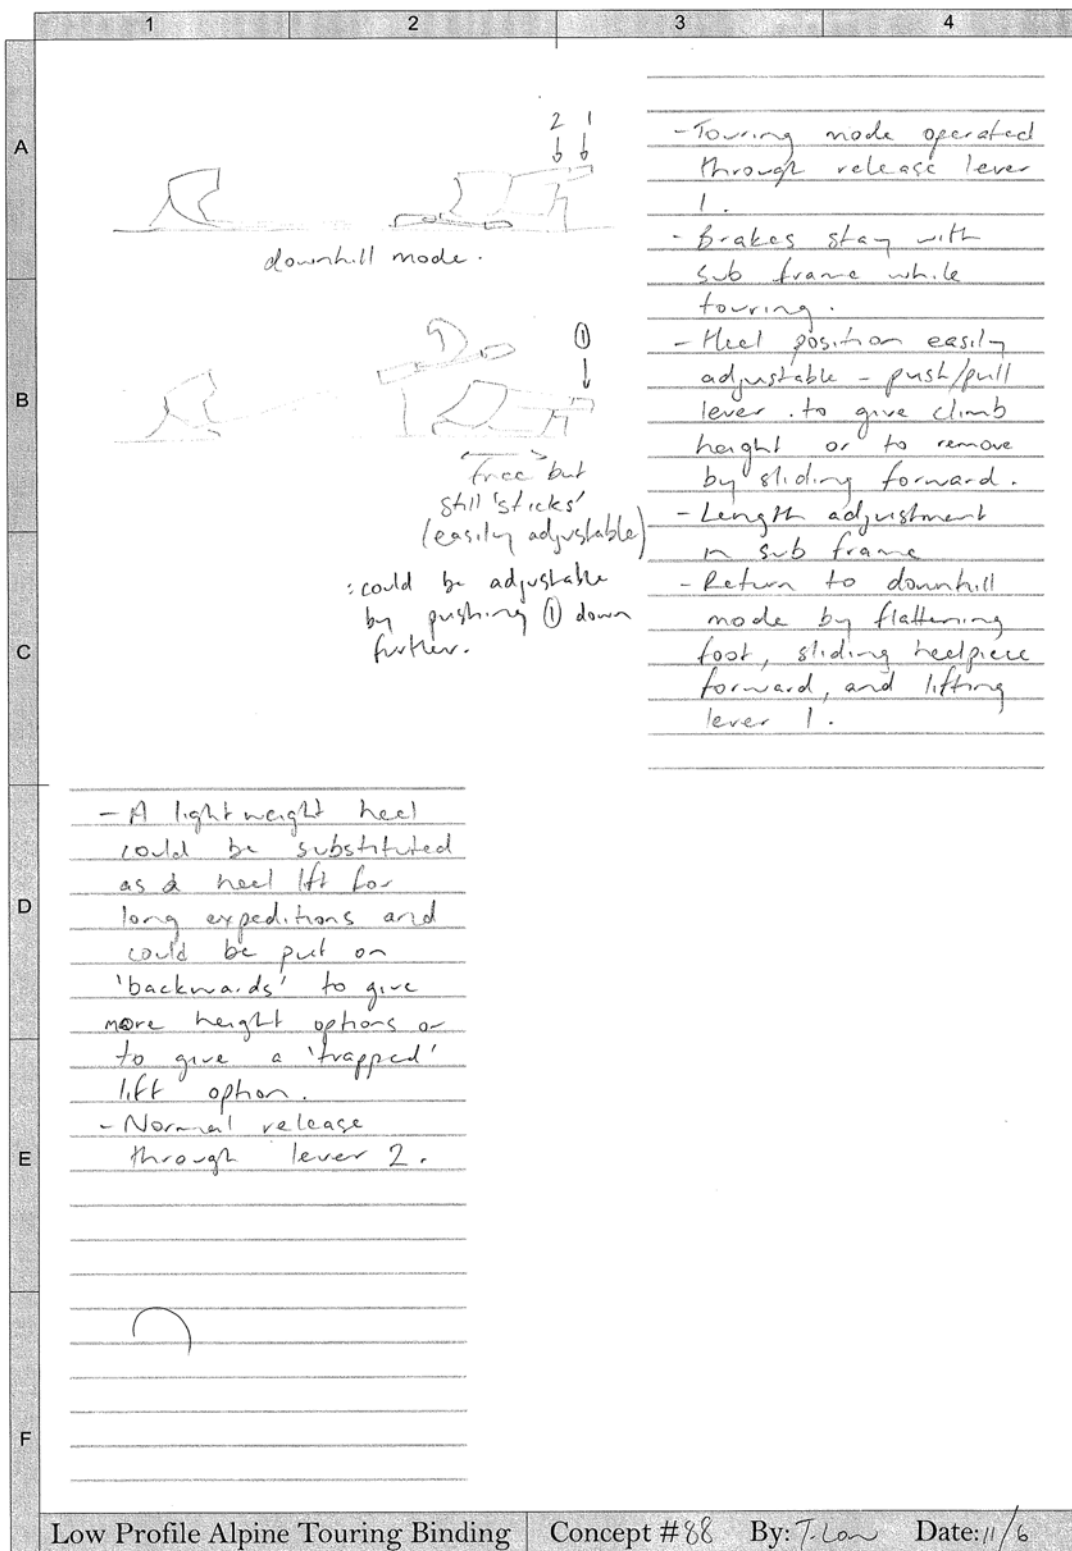 1 2 3 4
A
B
C
D
E
F
2 1
downhill mode.
①
free but
still 'sticks'
(easily adjustable)
: could be adjustable
by pushing ① down
further.
- Touring mode operated
through release lever
1.
- Brakes stay with
sub frame while
touring.
- Heel position easily
adjustable - push/pull
lever . to give climb
height or to remove
by sliding forward.
- Length adjustment
in sub frame
- Return to downhill
mode by flattening
foot, sliding heelpiece
forward, and lifting
lever 1.
- A lightweight heel
could be substituted
as a heel lift for
long expeditions and
could be put on
'backwards' to give
more height options or
to give a 'trapped'
lift option.
- Normal release
through lever 2.
Low Profile Alpine Touring Binding Concept #88 By: T. Date: 11/6